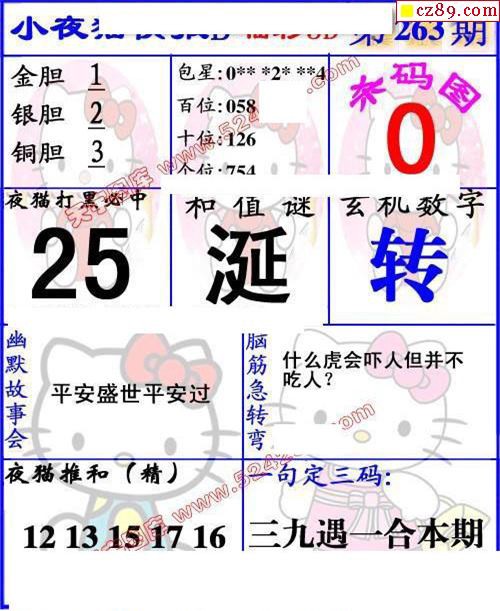 cz89.com
小夜猫
第263期
金胆 1
银胆 2
铜胆 3
包星:0** *2* **4
百位:058
十位:126
个位:754
杀码图
0
夜猫打黑必中
25
和值谜
涎
玄机数字
转
幽默故事会
平安盛世平安过
脑筋急转弯
什么虎会吓人但并不
吃人?
夜猫推和(精)
12 13 15 17 16
一句定三码:
三九遇一合本期